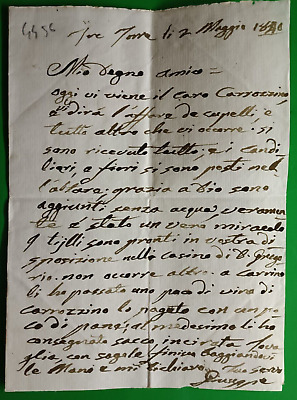 4456
Tre Torre li 2 Maggio
Mio Degno amico =
oggi vi viene il Caro Carrozzino,
e dirà l'affare de capelli, e
tutto altro che vi occorre: si
sono ricevute tutto, e i candi
lieri, e fiori si sono posti nel
l'altare: grazia a Dio sono
aggiunti senza acqua veramen
te è stato un vero miracolo
i tilli sono pronti in vostra di
sposizione nello casino di D. Grego
rio. non occorre altro. a Carrino
li ho passato un poco di vino di
carrozzino lo pagato con un po
co di pane, al medesimo li ho
consegnato sacco, incirata Tova
glia, con sogole finivo baggiandovi
le Mano e mi dichiaro
Giuseppe